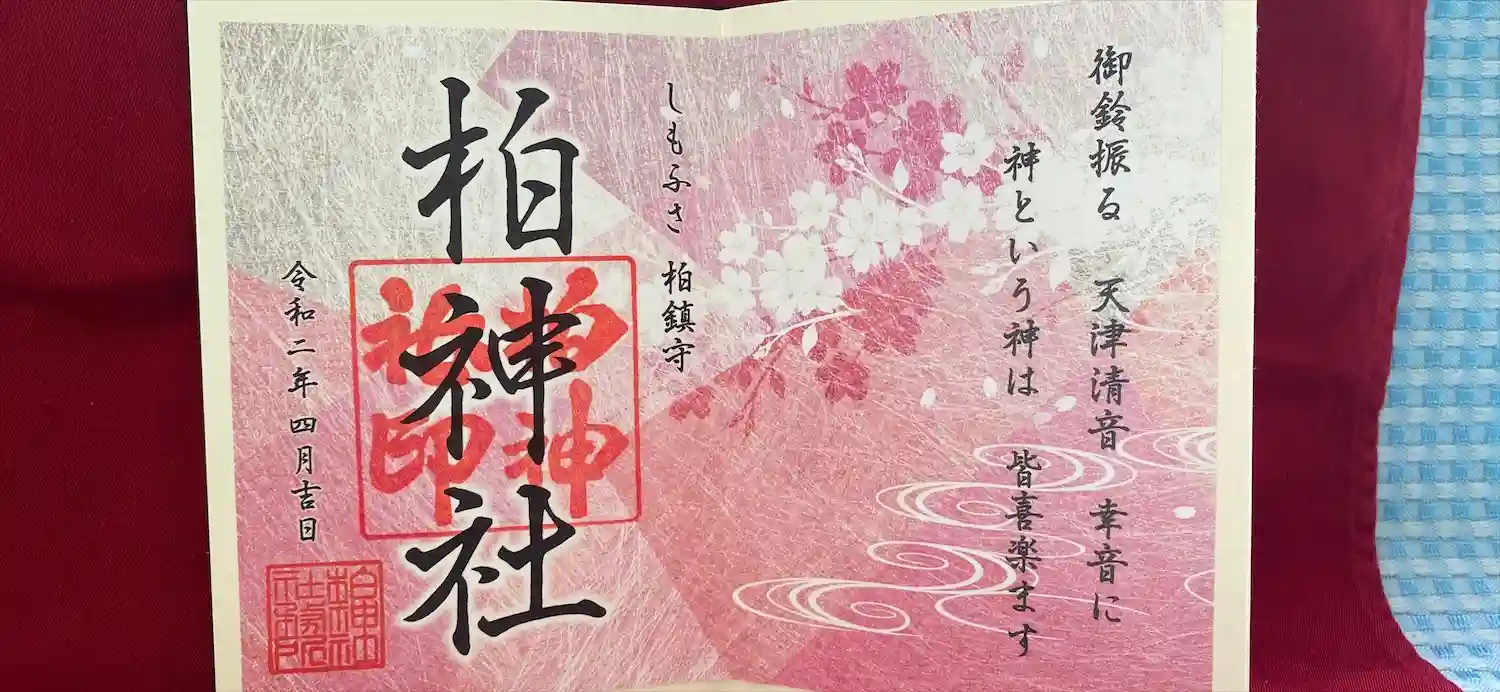 御鈴振る 天津清音 幸音に
神という神は 皆喜楽ます
しもふさ 柏鎮守
柏神社
柏神
社印
令和二年四月吉日